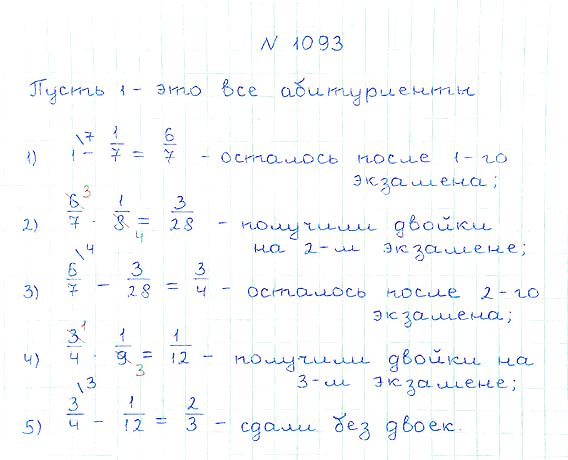 N 1093
Пусть 1 - это все абитуриенты
1) 1\7 - 1/7 = 6/7 - осталось после 1-го
экзамена;
2) 6/7 3 · 1/8 4 = 3/28 - получили двойки
на 2-м экзамене;
3) 6/7\4 - 3/28 = 3/4 - осталось после 2-го
экзамена;
4) 3/4 1 · 1/9 3 = 1/12 - получили двойки на
3-м экзамене;
5) 3/4\3 - 1/12 = 2/3 - сдали без двоек.